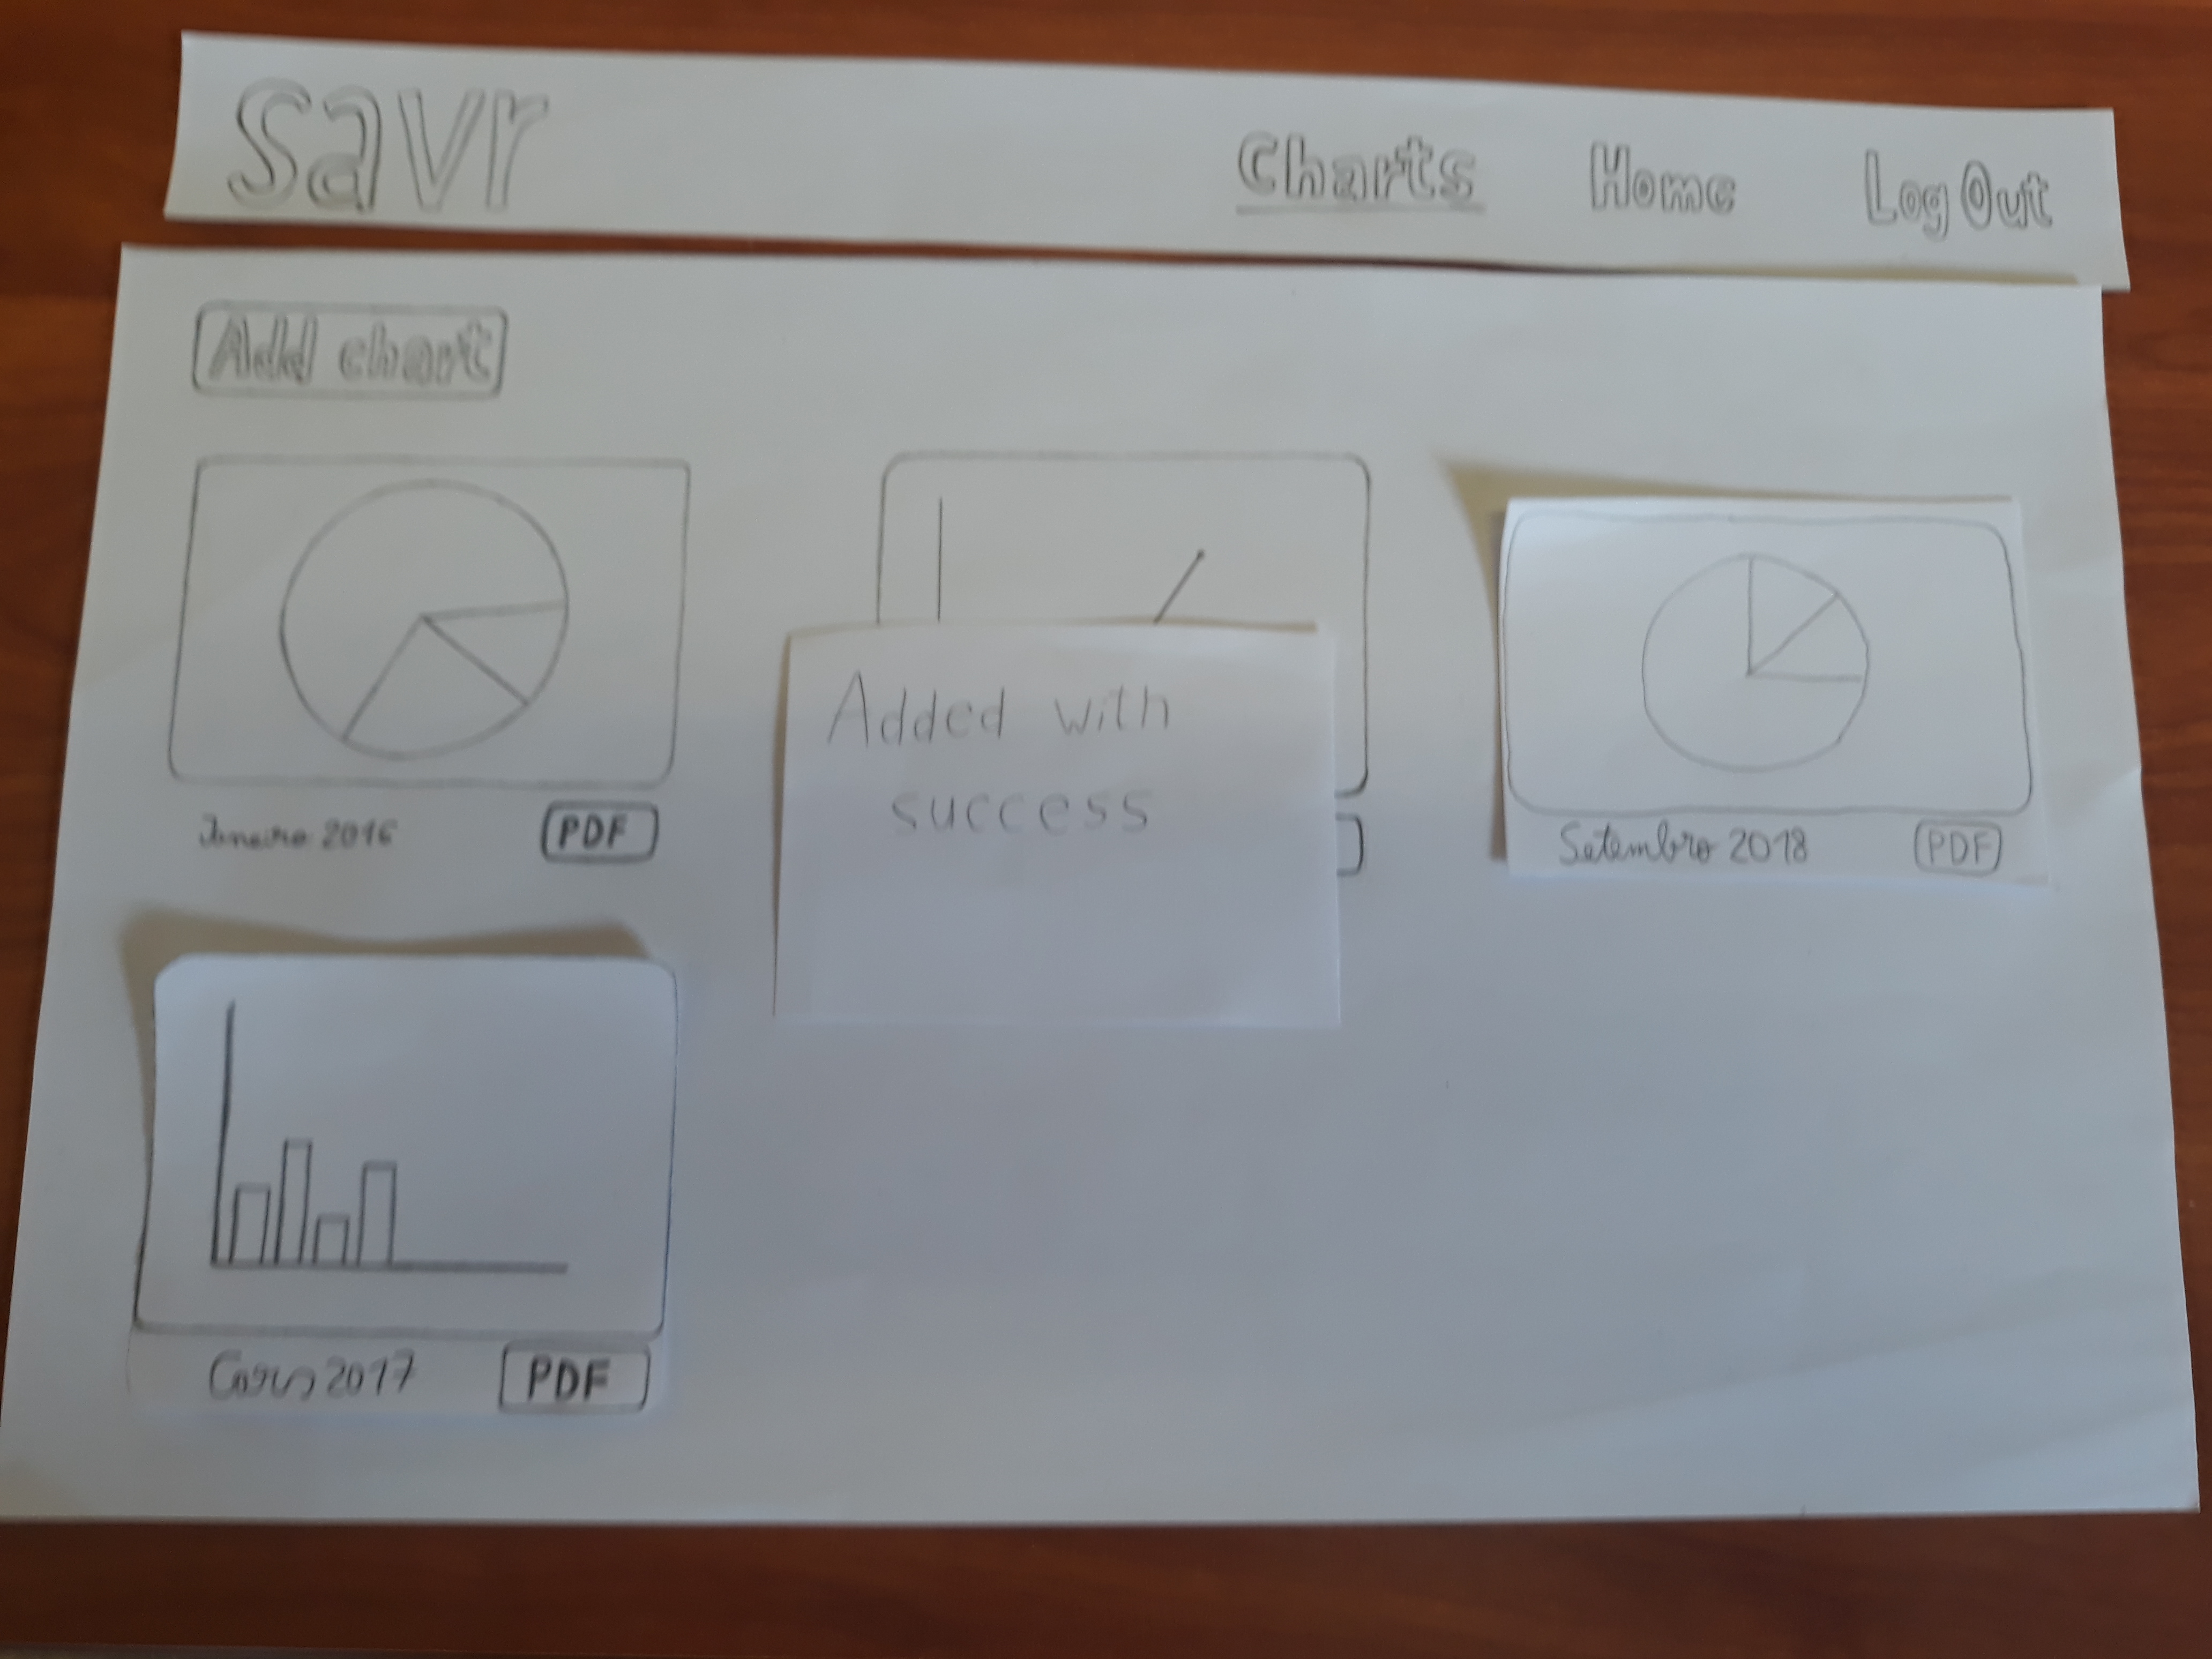 Savr
Charts
Home
Log Out
Add chart
Janeiro 2016
PDF
Added with
success
Setembro 2018
PDF
2017
PDF